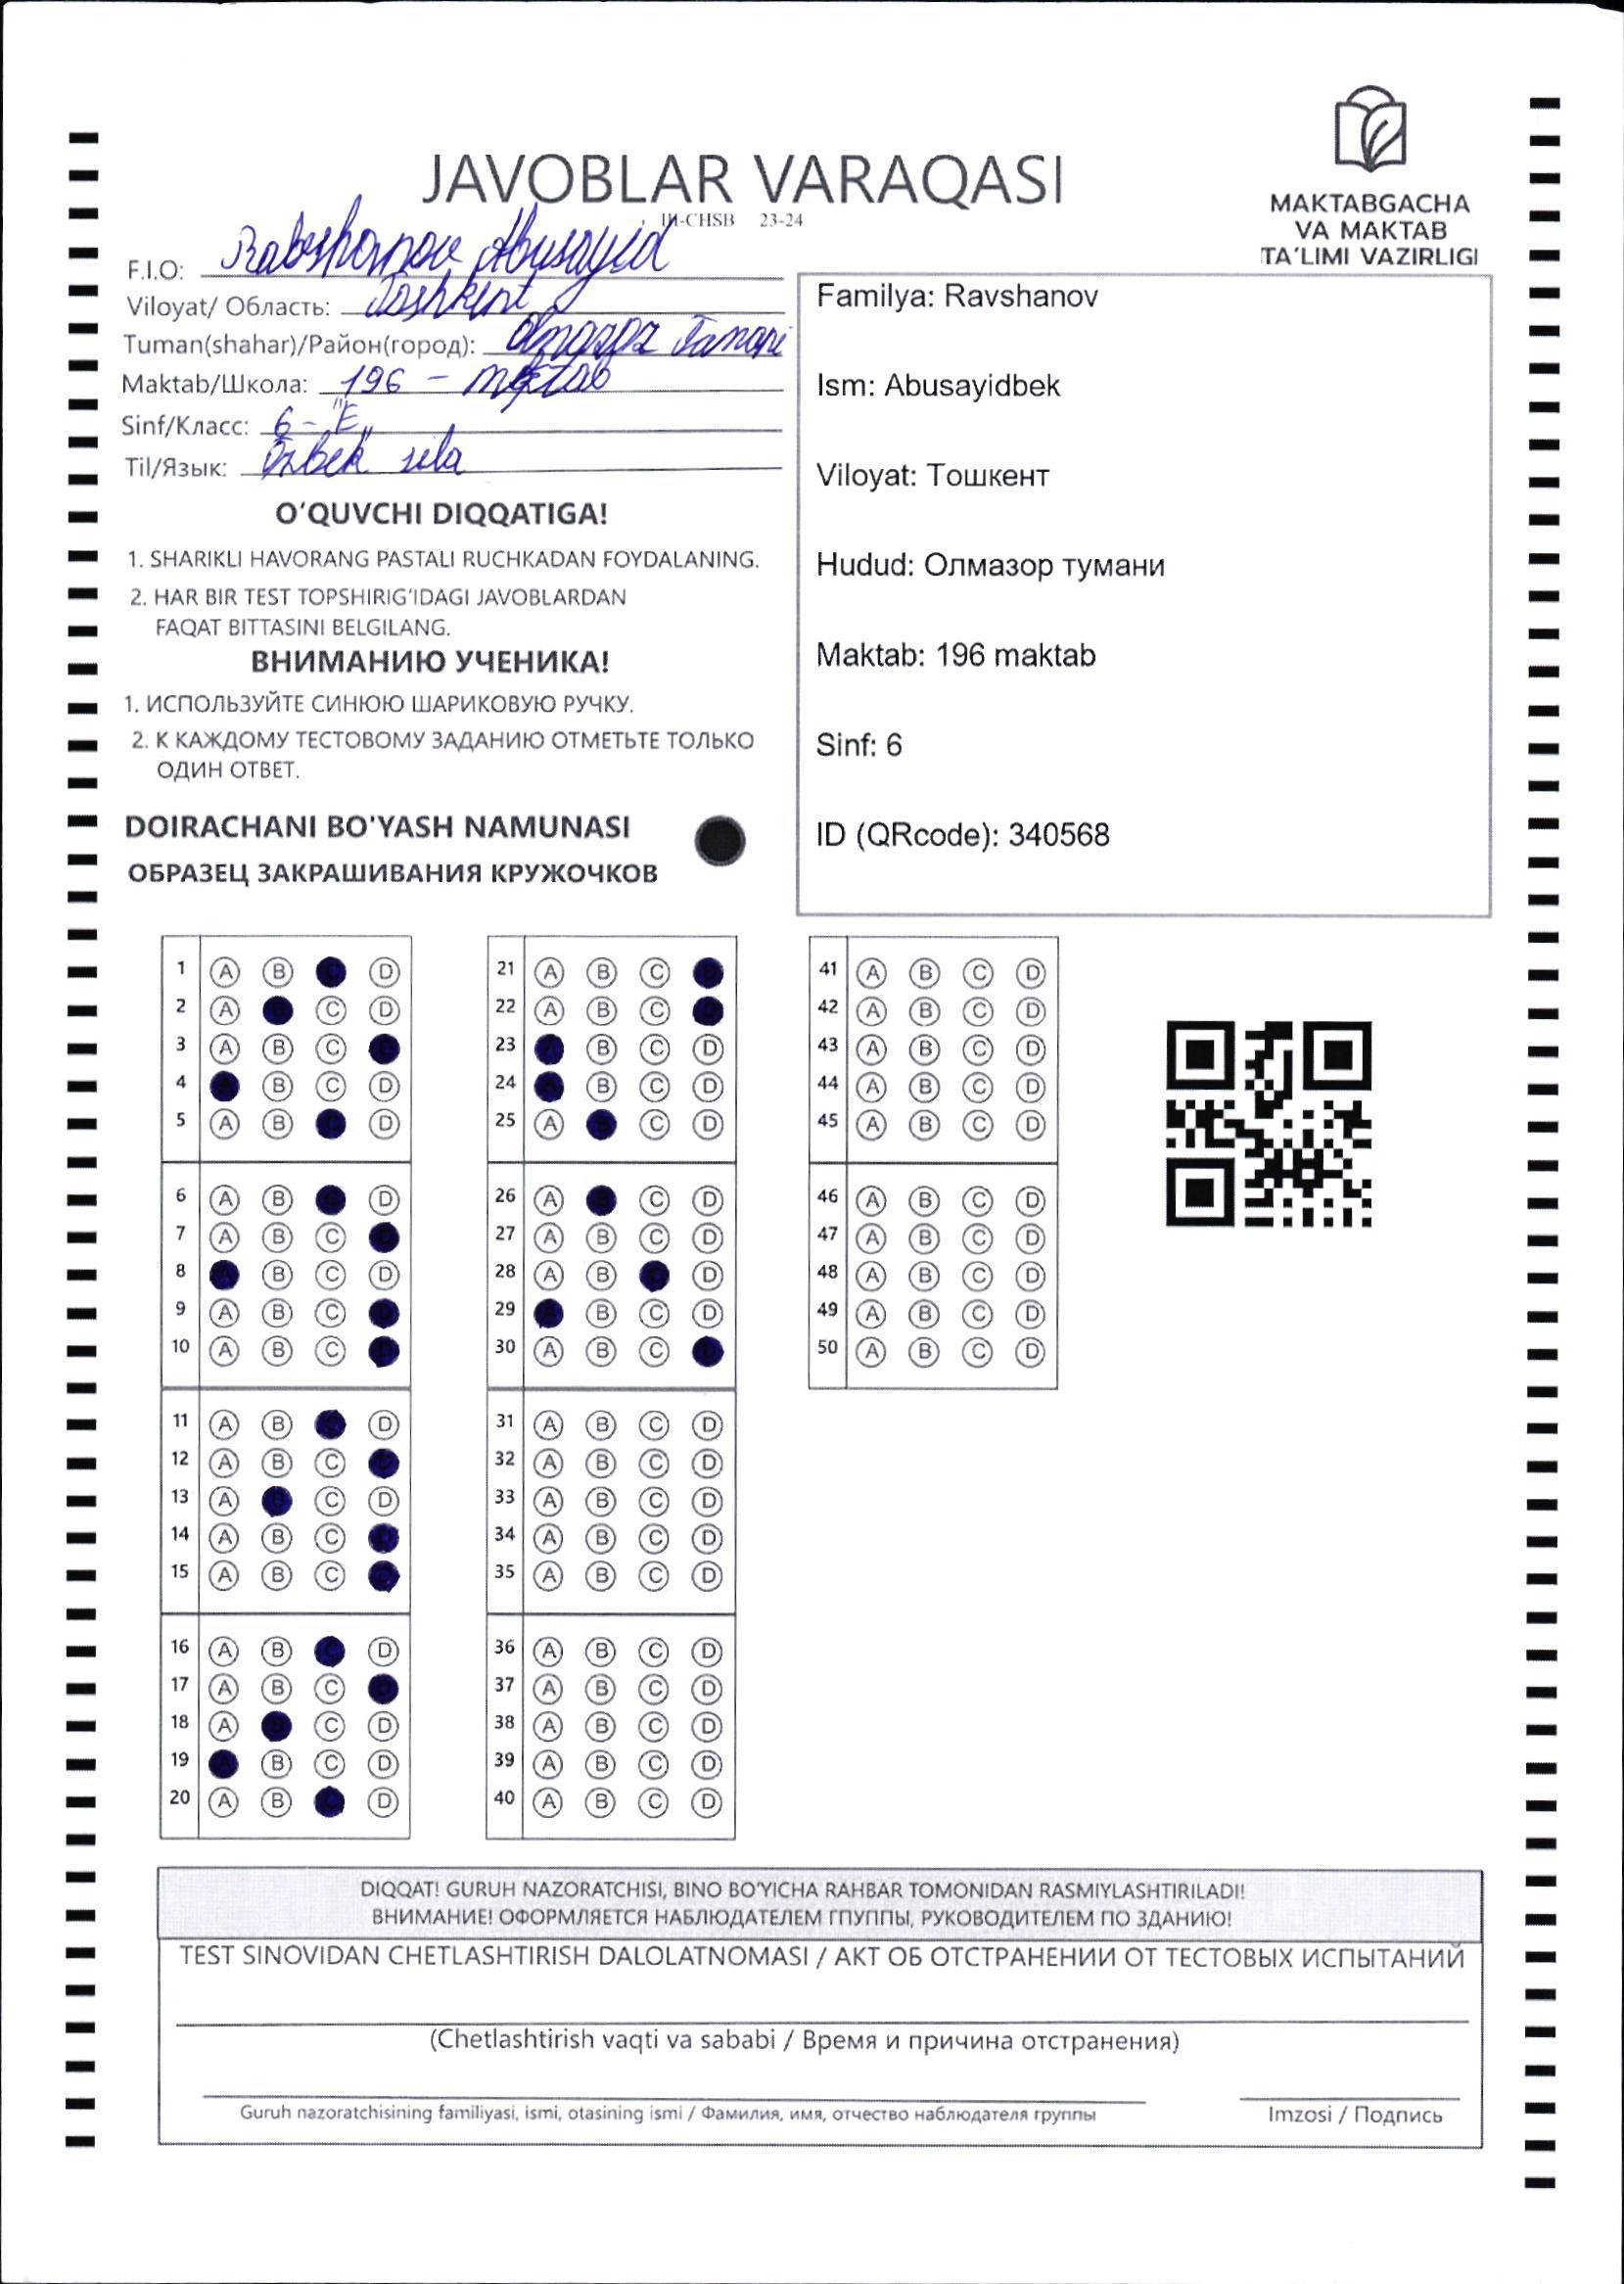 JAVOBLAR VARAQASI
III-CHSB 23-24
MAKTABGACHA
VA MAKTAB
TA'LIMI VAZIRLIGI
F.I.O: Abusayid
Viloyat/ Область: Toshkent
Tuman(shahar)/Район(город):
Maktab/Школа: 196 - maktab
Sinf/Класс: 6-"E"
Til/Язык:
Familya: Ravshanov
Ism: Abusayidbek
Viloyat: Тошкент
Hudud: Олмазор тумани
Maktab: 196 maktab
Sinf: 6
ID (QRcode): 340568
O'QUVCHI DIQQATIGA!
1. SHARIKLI HAVORANG PASTALI RUCHKADAN FOYDALANING.
2. HAR BIR TEST TOPSHIRIG'IDAGI JAVOBLARDAN
FAQAT BITTASINI BELGILANG.
ВНИМАНИЮ УЧЕНИКА!
1. ИСПОЛЬЗУЙТЕ СИНЮЮ ШАРИКОВУЮ РУЧКУ.
2. К КАЖДОМУ ТЕСТОВОМУ ЗАДАНИЮ ОТМЕТЬТЕ ТОЛЬКО
ОДИН ОТВЕТ.
DOIRACHANI BO'YASH NAMUNASI
ОБРАЗЕЦ ЗАКРАШИВАНИЯ КРУЖОЧКОВ
1 A B D
2 A C D
3 A B C
4 B C D
5 A B D
6 A B D
7 A B C
8 B C D
9 A B C
10 A B C
11 A B D
12 A B C
13 A C D
14 A B C
15 A B C
16 A B D
17 A B C
18 A C D
19 B C D
20 A B D
21 A B C
22 A B C
23 B C D
24 B C D
25 A C D
26 A C D
27 A B C D
28 A B D
29 B C D
30 A B C
31 A B C D
32 A B C D
33 A B C D
34 A B C D
35 A B C D
36 A B C D
37 A B C D
38 A B C D
39 A B C D
40 A B C D
41 A B C D
42 A B C D
43 A B C D
44 A B C D
45 A B C D
46 A B C D
47 A B C D
48 A B C D
49 A B C D
50 A B C D
DIQQAT! GURUH NAZORATCHISI, BINO BO'YICHA RAHBAR TOMONIDAN RASMIYLASHTIRILADI!
ВНИМАНИЕ! ОФОРМЛЯЕТСЯ НАБЛЮДАТЕЛЕМ ГПУППЫ, РУКОВОДИТЕЛЕМ ПО ЗДАНИЮ!
TEST SINOVIDAN CHETLASHTIRISH DALOLATNOMASI / АКТ ОБ ОТСТРАНЕНИИ ОТ ТЕСТОВЫХ ИСПЫТАНИЙ
(Chetlashtirish vaqti va sababi / Время и причина отстранения)
Guruh nazoratchisining familiyasi, ismi, otasining ismi / Фамилия, имя, отчество наблюдателя группы
Imzosi / Подпись